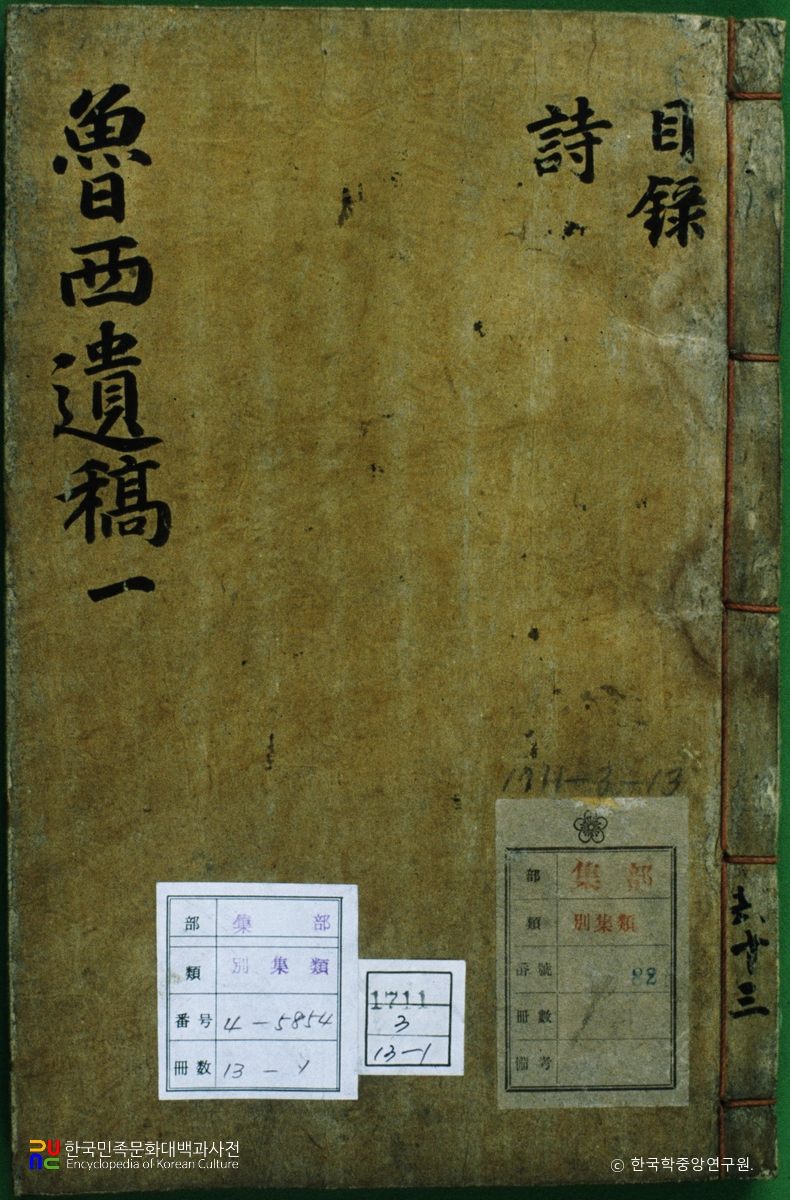 目錄
詩
魯西遺稿 一
共十三
1711-3-13
部 集部
類 別集類
番號 82
冊數
備考
部 集部
類 別集類
番号 4-5854
冊数 13-1
1711
3
13-1
한국민족문화대백과사전
Encyclopedia of Korean Culture
ⓒ 한국학중앙연구원.